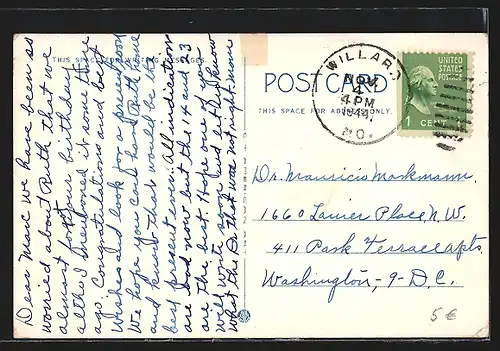 THIS SPACE FOR WRITING MESSAGES
Dear Marc we have been so
worried about Ruth that we
almost forgot your birthday
altho I mentioned it some time
ago. Congratulations and best
Wishes and look for a present soon
We hope you can have Ruth home
and know that would be the
best present ever. All indications
are bad now but the 14 and 23
are the best. Hope one of you
will write soon and let us know
what the Dr. that was not right more
POST CARD
THIS SPACE FOR ADDRESS ONLY.
WILLARD
NOV
4
4 PM
1944
MO.
UNITED
STATES
POSTAGE
1 CENT
Dr. Mauricio Markmann
1660 Lanier Place, N.W.
411 Park Terrace Apts.
Washington, -9- D.C.
5 €